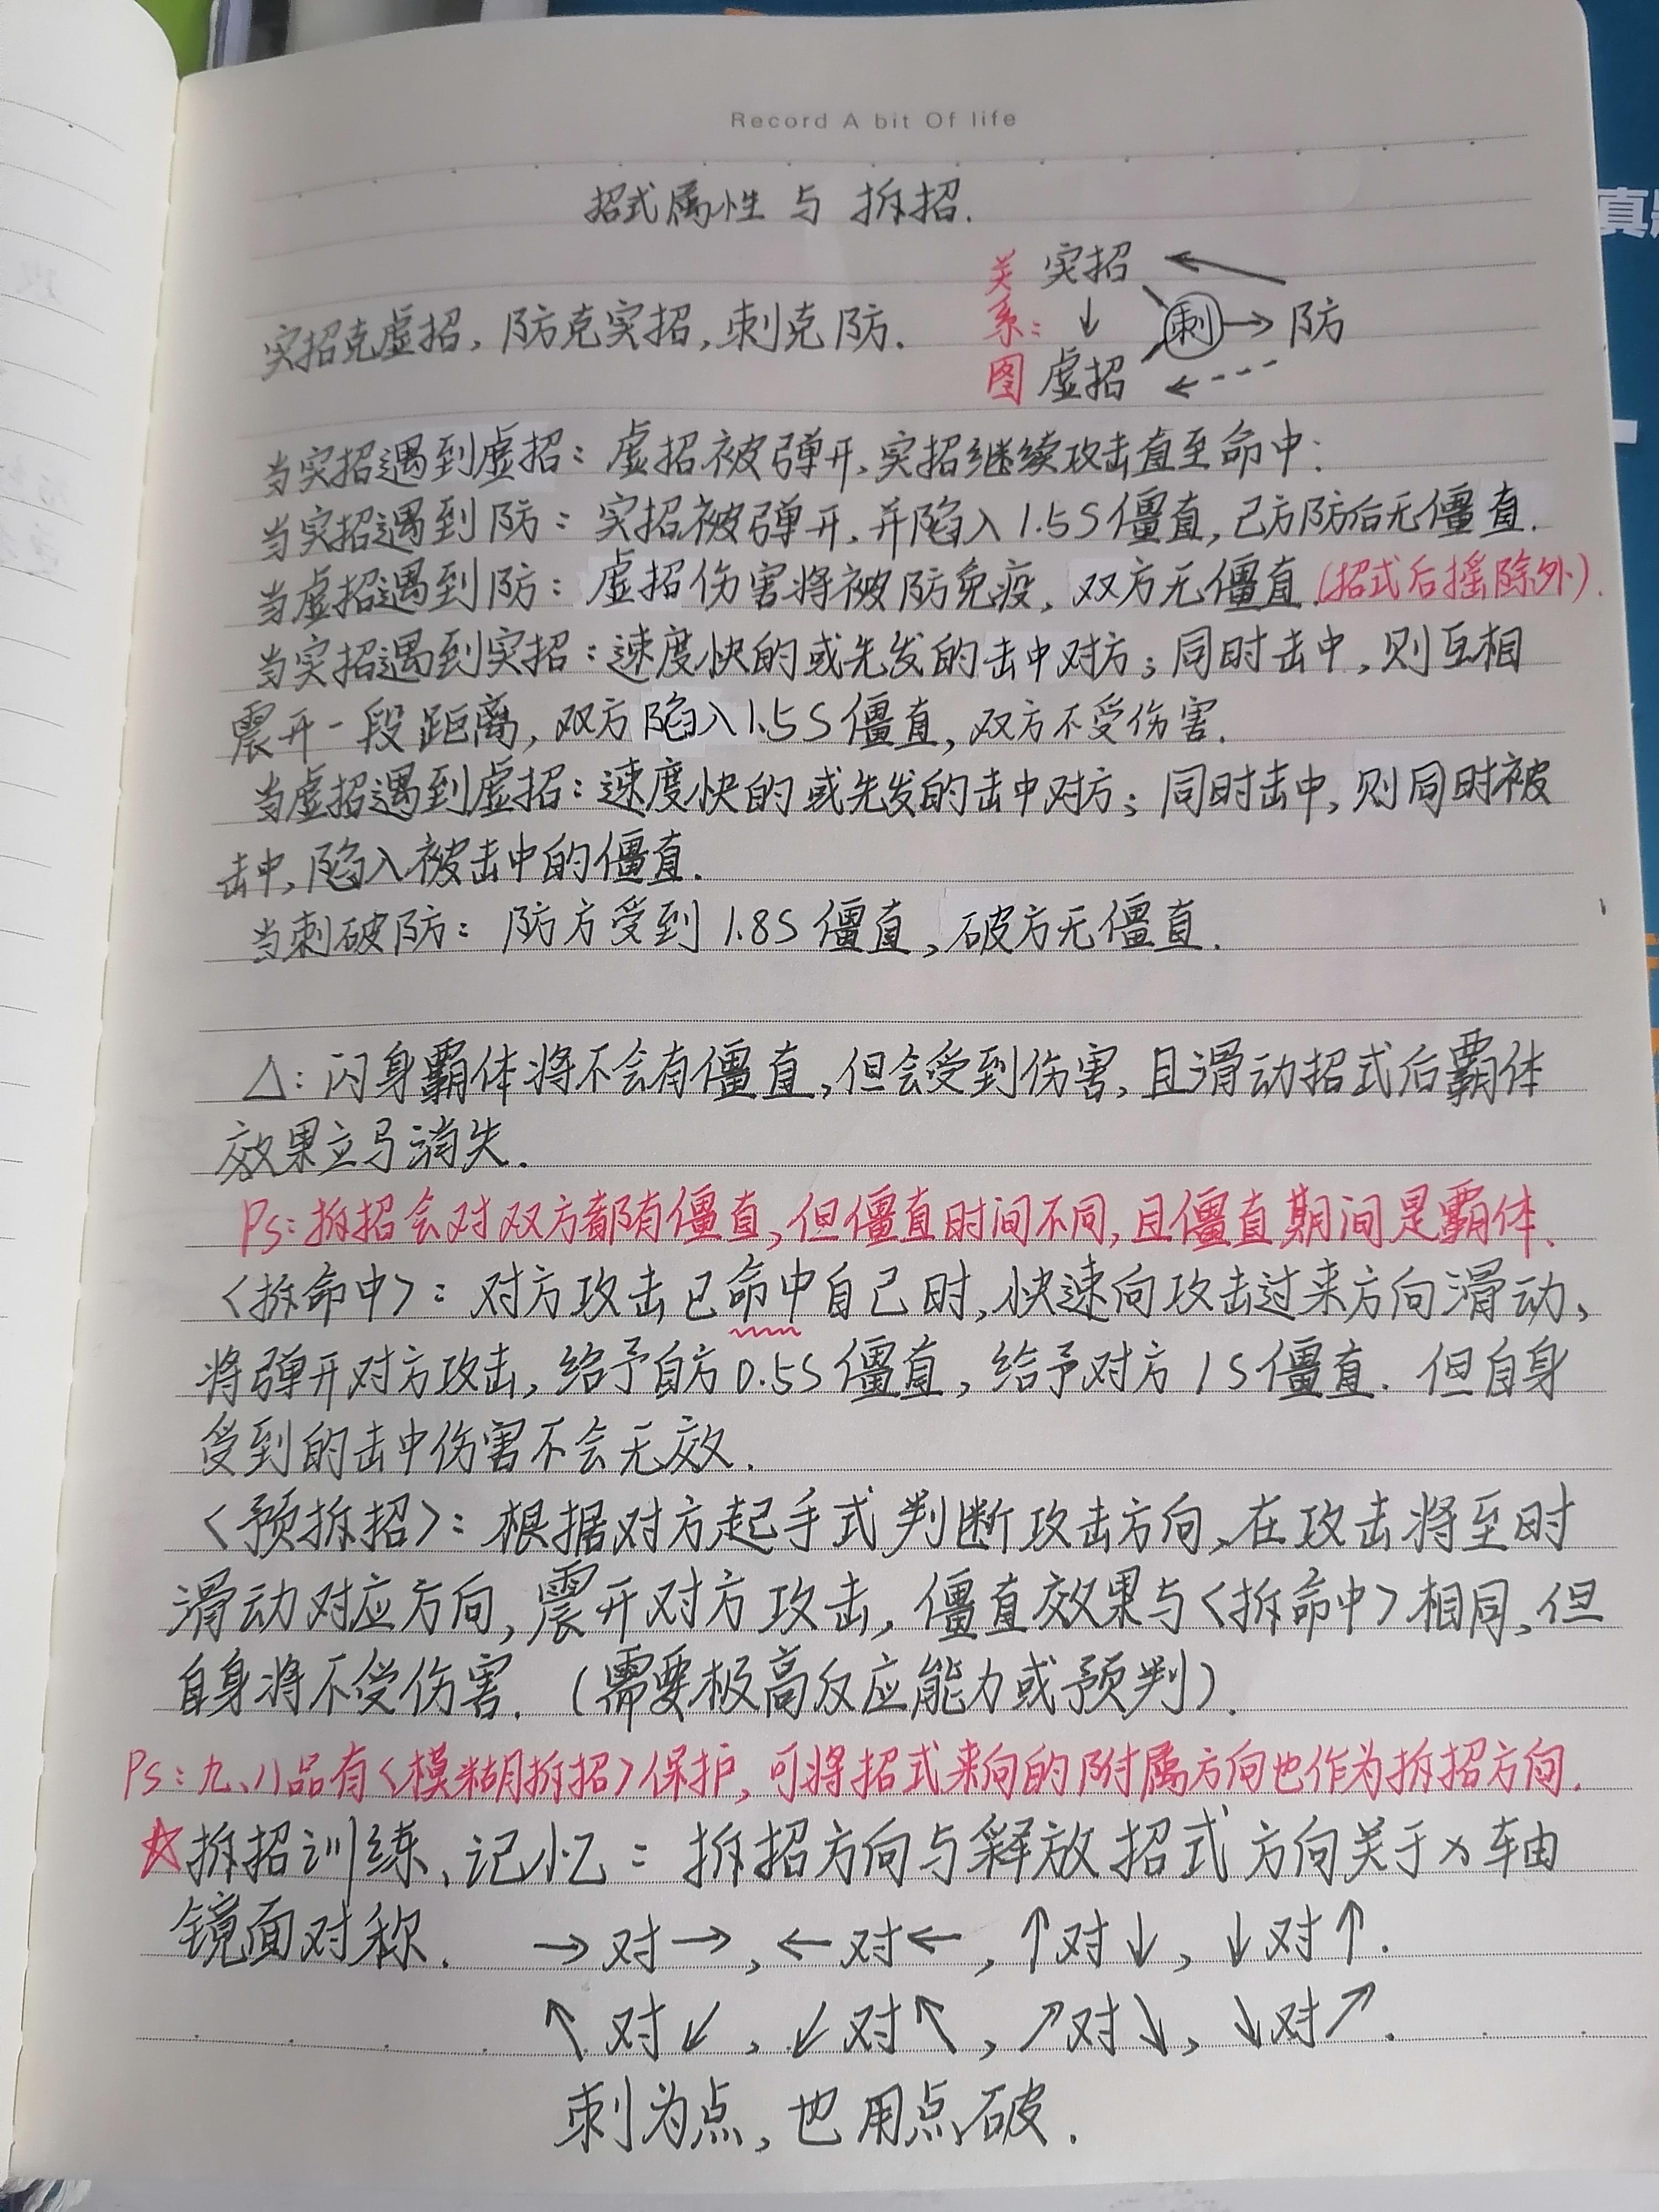 Record A bit Of life
真题
招式属性 与 拆招.
关系图: 实招 ← 
实招克虚招, 防克实招, 刺克防. ↓ 刺 → 防
虚招 ←--
当实招遇到虚招: 虚招被弹开, 实招继续攻击直至命中;
当实招遇到防: 实招被弹开, 并陷入1.5S僵直, 己方防后无僵直.
当虚招遇到防: 虚招伤害将被防免疫, 双方无僵直 (招式后摇除外).
当实招遇到实招: 速度快的或先发的击中对方; 同时击中, 则互相
震开一段距离, 双方陷入1.5S僵直, 双方不受伤害.
当虚招遇到虚招: 速度快的或先发的击中对方; 同时击中, 则同时被
击中, 陷入被击中的僵直.
当刺破防: 防方受到 1.8S 僵直, 破方无僵直.
△: 闪身霸体将不会有僵直, 但会受到伤害, 且滑动招式后霸体
效果立马消失.
Ps: 拆招会对双方都有僵直, 但僵直时间不同, 且僵直期间是霸体.
<拆命中>: 对方攻击已命中自己时, 快速向攻击过来方向滑动、
将弹开对方攻击, 给予自方0.5S僵直, 给予对方1S僵直. 但自身
受到的击中伤害不会无效.
<预拆招>: 根据对方起手式判断攻击方向, 在攻击将至时
滑动对应方向, 震开对方攻击, 僵直效果与<拆命中>相同, 但
自身将不受伤害. (需要极高反应能力或预判).
Ps: 九、八品有<模糊拆招>保护, 可将招式来向的附属方向也作为拆招方向.
☆拆招训练、记忆: 拆招方向与释放招式方向关于x轴
镜面对称. →对→, ←对←, ↑对↓, ↓对↑.
↖对↙, ↙对↖, ↗对↘, ↘对↗.
刺为点, 也用点破.